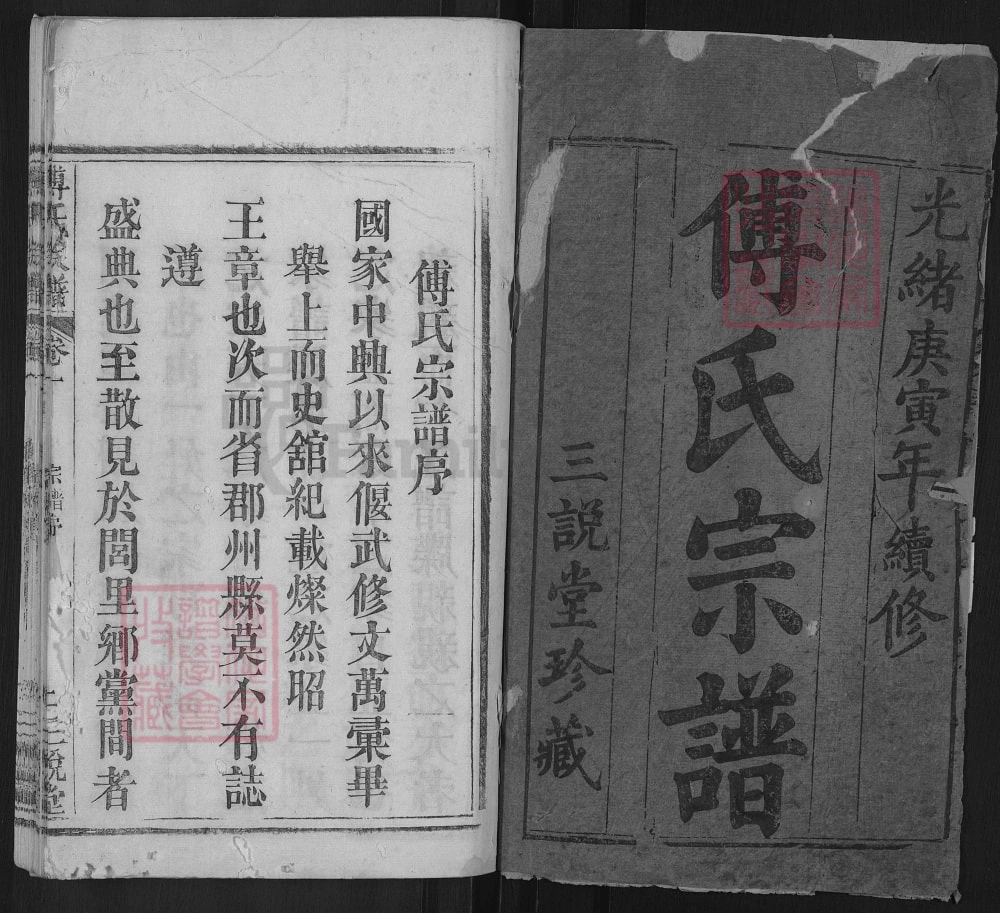 光緒庚寅年續修
傅氏宗譜
三説堂珍藏
傅氏宗譜序
國家中興以來偃武修文萬彙畢
舉上而史舘紀載燦然昭
王章也次而省郡州縣莫不有誌
遵
盛典也至散見於閭里鄉黨間者
傅氏宗譜
卷一
宗譜序
三説堂